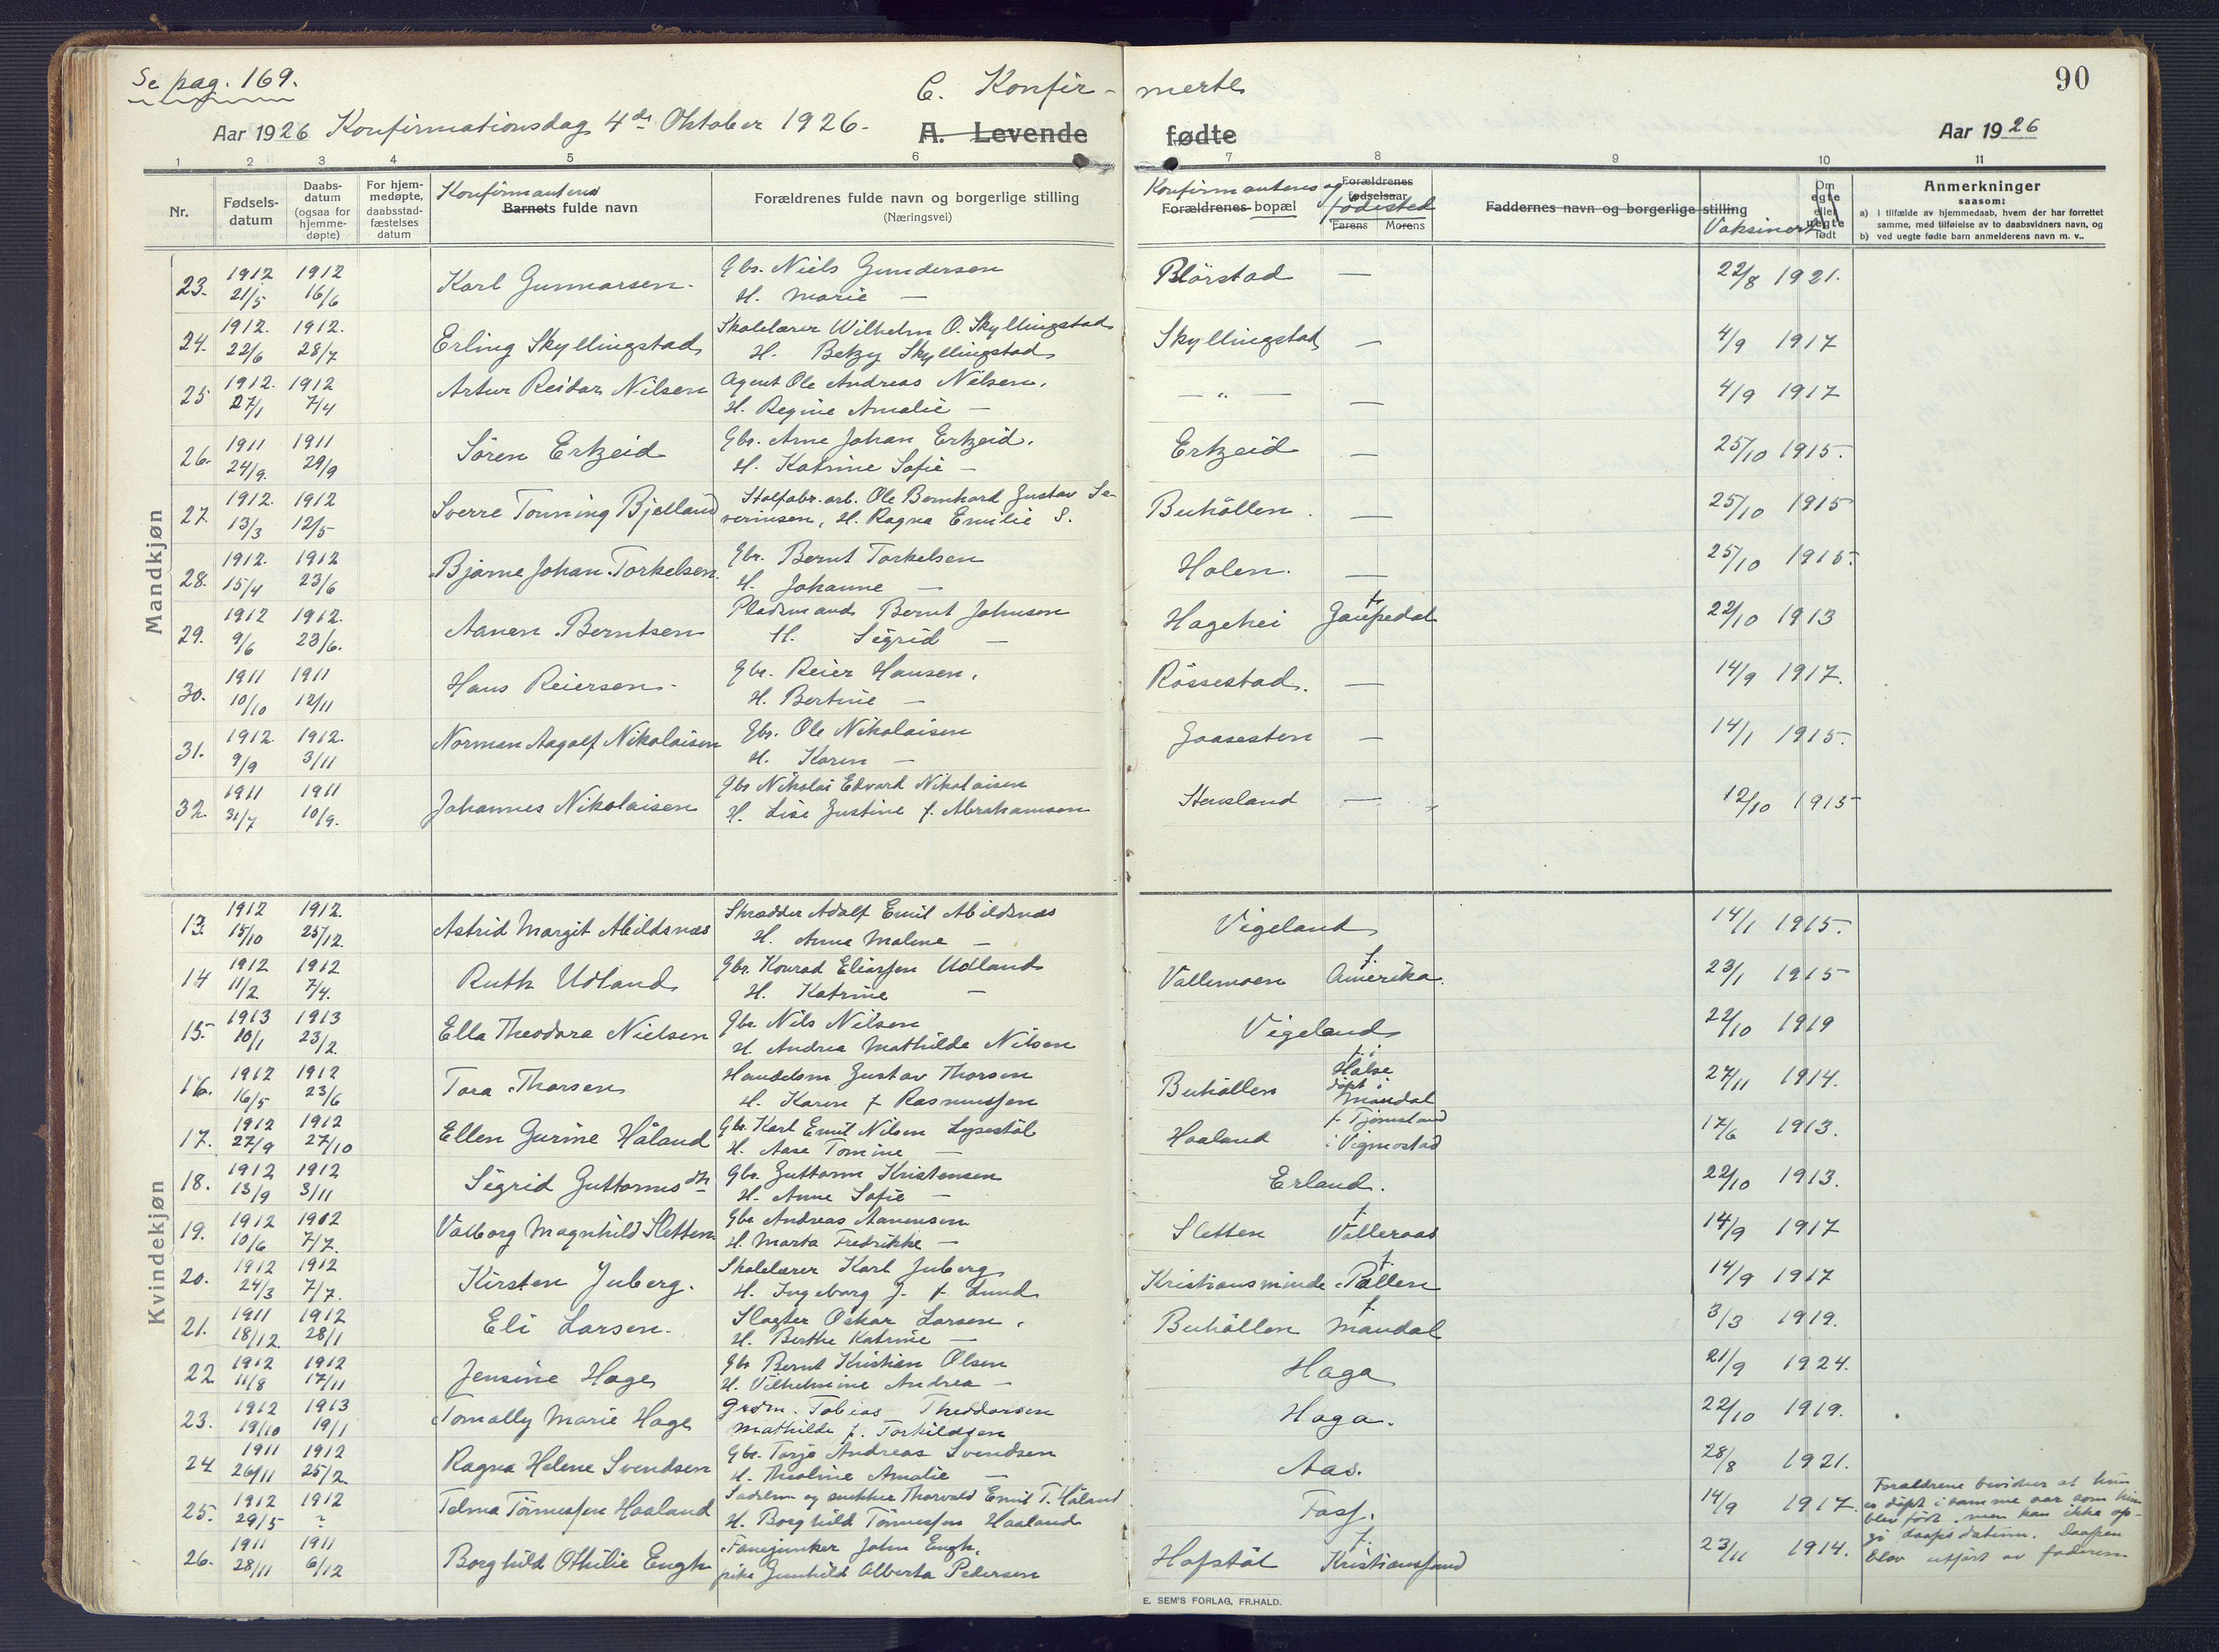 Se pag. 169.
C. Konfir- merte
90
Aar 1926 Konfirmationsdag 4de Oktober 1926. A. Levende fødte Aar 1926
1 2 3 4 5 6 7 8 9 10 11
Nr. Fødsels-datum Daabs-datum (ogsaa for hjemme-døpte) For hjem-medøpte, daabsstad-fæstelses datum Konfirmantens Barnets fulde navn Forældrenes fulde navn og borgerlige stilling (Næringsvei) Konfirmantens og Forældrenes bopæl Forældrenes fødselsaar fødested Farens Morens Faddernes navn og borgerlige stilling Vaksinert Om egte eller uegte født Anmerkninger saasom: a) i tilfælde av hjemmedaab, hvem der har forrettet samme, med tilføielse av to daabsvidners navn, og b) ved uegte fødte barn anmelderens navn m. v..
Mandkjøn
23. 1912 21/5 1912 16/6 Karl Gunnarsen. Gbr. Niels Gundersen H. Marie — Blörstad — 22/8 1921.
24. 1912. 22/6 1912. 28/7 Erling Skyllingstad Skolelærer Wilhelm O. Skyllingstad H. Betzy Skyllingstad Skyllingstad — 4/9 1917
25 1912. 27/1 1912 7/4 Artur Reidar Nilsen Agent Ole Andreas Nilsen. H. Regine Amalie — — " — — 4/9 1917
26. 1911 24/9. 1911 29/9 Sören Erkzeid Gbr. Arne Johan Erkzeid. H. Katrine Sofie — Erkzeid — 25/10 1915.
27. 1912. 13/3 1912 12/5 Sverre Tonning Bjelland Stolfabr. arb. Ole Bernhard Gustav Se-verinsen, H. Ragna Emilie S. Buhöllen. — 25/10 1915
28. 1912. 15/4 1912 23/6 Bjarne Johan Torkelsen. Gbr. Bernt Torkelsen H. Johanne — Holen. — 25/10 1915.
29. 1912 9/6 1912. 23/6. Aanen Berntsen Pladsmand Bernt Johnsen H. Sigrid — Hagehei f. Gaupedal 22/10 1913
30. 1911 10/10 1911 12/11 Hans Reiersen. Gbr. Reier Hansen. H. Bertine — Rössestad. — 14/9 1917.
31. 1912. 9/9 1912. 3/11 Norman Aagolf Nikolaisen Gbr. Ole Nikolaisen H. Karen — Gaasesten — 14/1 1915.
32. 1911 31/7 1911 10/9. Johannes Nikolaisen Gbr Nikolai Edvard Nikolaisen H. Lise Gustine f. Abrahamsen Stensland — 12/10 1915
Kvindekjøn
13. 1912 15/10 1912. 25/12. Astrid Margit Abildsnes Skrædder Adolf Emil Abildsnes H. Anna Malene — Vigeland 14/1 1915.
14 1912 11/2. 1912 7/4. Ruth Udland Gbr. Konrad Eliassen Udland H. Katrine — Vallemoen f. Amerika. 23/1 1915
15. 1913 10/1 1913 23/2. Ella Theodora Nielsen Gbr Nils Nilsen H. Andrea Mathilde Nilsen Vigeland 22/10 1919
16. 1912 16/5 1912 23/6 Tora Thorsen Handelsm Gustav Thorsen H. Karen f Rasmussen Buhöllen f. i Halse döpt i Mandal 27/11 1914.
17. 1912 27/9 1912 27/10 Ellen Gurine Håland Gbr. Karl Emil Nilsen Lysestöl H. Aase Tomine — Haaland f. Tjomsland i Vigmostad 17/6 1913.
18. 1912 13/9 1912 3/11 Sigrid Guttormsdtr Gbr. Guttorm Kristensen H. Anne Sofie — Erland. 22/10 1913.
19. 1912 10/6 1912 7/7. Valborg Magnhild Sletten Gbr Andreas Aanensen H. Marta Fredrikke — Sletten f. Valleraas 14/9 1917
20. 1912 24/3 1912 7/7. Kirsten Juberg. Skolelærer Karl Juberg H. Ingeborg J. f Lund Kristiansminde f. Pöllen 14/9 1917
21. 1911 18/12. 1912 28/1 Eli Larsen. Slagter Oskar Larsen. H. Berthe Katrine — Buhöllen f. Mandal 3/3 1919.
22 1912 11/8 1912 17/11 Jensine Hage Gbr Bernt Kristian Olsen H. Vilhelmine Andrea — Haga 21/9 1924.
23. 1912 19/10 1913 19/1 Tomally Marie Hage Grdm. Tobias Theodorsen Mathilde f. Torkildsen Haga. 22/10 1919.
24 1911 26/11 1912 25/2 Ragna Helene Svendsen Gbr. Tarje Andreas Svendsen H. Theoline Amalie — Aas. 28/8 1921.
25. 1912 29/5 1912 ? Telma Tönnessen Haaland Sadelm og snekker Thorvald Emil T. Håland H. Borghild Tönnessen Haaland Foss. 14/9 1917. Foraldrene bevidner at hun er döpt i samme aar som hun blev födt, men kan ikke op-gi daapsdatum. Daapen blev utfört av faderen
26. 1911 28/11 1911 6/12 Borghild Othilie Engh Fanejunker John Engh. pike Gunhild Alberta Pedersen Hofstöl f. Kristianssand 23/11 1914.
E. SEM'S FORLAG, FR.HALD.